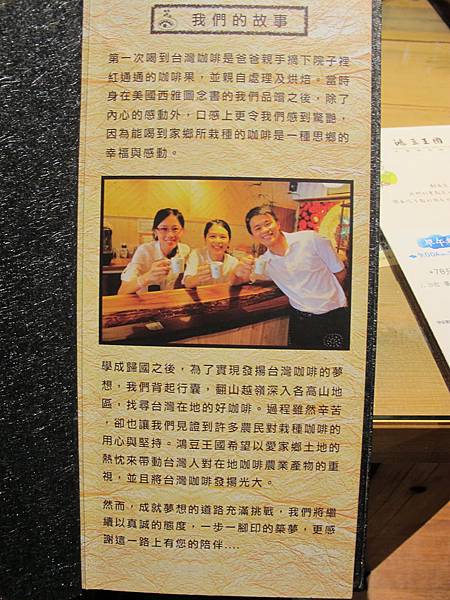 我們的故事
第一次喝到台灣咖啡是爸爸親手摘下院子裡
紅通通的咖啡果，並親自處理及烘焙。當時
身在美國西雅圖念書的我們品嚐之後，除了
內心的感動外，口感上更令我們感到驚艷，
因為能喝到家鄉所栽種的咖啡是一種思鄉的
幸福與感動。
學成歸國之後，為了實現發揚台灣咖啡的夢
想，我們背起行囊，翻山越嶺深入各高山地
區，找尋台灣在地的好咖啡。過程雖然辛苦
，卻也讓我們見證到許多農民對栽種咖啡的
用心與堅持。鴻豆王國希望以愛家鄉土地的
熱忱來帶動台灣人對在地咖啡農業產物的重
視，並且將台灣咖啡發揚光大。
然而，成就夢想的道路充滿挑戰，我們將繼
續以真誠的態度，一步一腳印的築夢，更感
謝這一路上有您的陪伴....
鴻豆王國